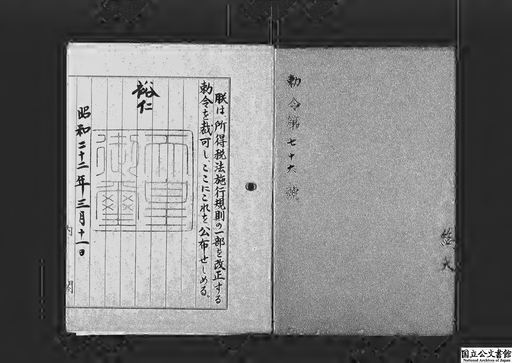 勅令第七十六號
朕は、所得税法施行規則の一部を改正する
勅令を裁可し、ここにこれを公布せしめる。
裕仁
天皇御璽
昭和二十二年三月十一日
内閣
国立公文書館
National Archives of Japan